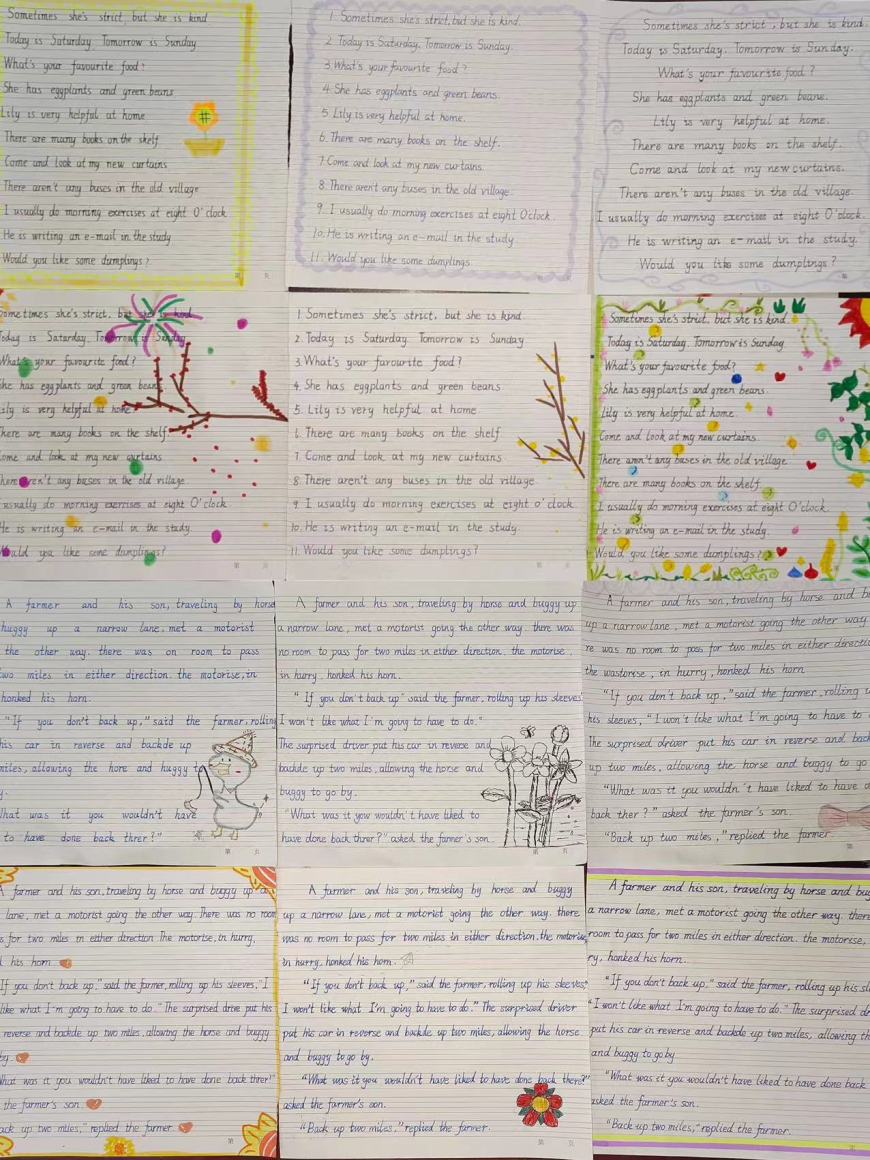 Sometimes she's strict, but she is kind
Today is Saturday. Tomorrow is Sunday
What's your favourite food?
She has eggplants and green beans
Lily is very helpful at home
There are many books on the shelf
Come and look at my new curtains
There aren't any buses in the old village
I usually do morning exercises at eight O'clock
He is writing an e-mail in the study
Would you like some dumplings?
1. Sometimes she's strict, but she is kind.
2. Today is Saturday. Tomorrow is Sunday.
3. What's your favourite food?
4. She has eggplants and green beans.
5. Lily is very helpful at home.
6. There are many books on the shelf.
7. Come and look at my new curtains.
8. There aren't any buses in the old village.
9. I usually do morning exercises at eight O'clock.
10. He is writing an e-mail in the study.
11. Would you like some dumplings
Sometimes she's strict, but she is kind.
Today is Saturday. Tomorrow is Sunday.
What's your favourite food?
She has eggplants and green beans.
Lily is very helpful at home.
There are many books on the shelf.
Come and look at my new curtains.
There aren't any buses in the old village.
I usually do morning exercises at eight O'clock.
He is writing an e-mail in the study.
Would you like some dumplings?
ometimes she's strict, but she is kind
oday is Saturday. Tomorrow is Sunday
What's your favourite food?
he has eggplants and green beans
ily is very helpful at home
here are many books on the shelf.
ome and look at my new curtains
There aren't any buses in the old village
usually do morning exercises at eight O'clock
He is writing an e-mail in the study
Would you like some dumplings?
1. Sometimes she's strict, but she is kind
2. Today is Saturday. Tomorrow is Sunday
3. What's your favourite food?
4. She has eggplants and green beans
5. Lily is very helpful at home
6. There are many books on the shelf
7. Come and look at my new curtains
8. There aren't any buses in the old village
9. I usually do morning exercises at eight o'clock
10. He is writing an e-mail in the study
11. Would you like some dumplings?
Sometimes she's strict, but she is kind.
Today is Saturday. Tomorrow is Sunday
What's your favourite food?
She has eggplants and green beans.
Lily is very helpful at home.
Come and look at my new curtains
There aren't any buses in the old village.
There are many books on the shelf
I usually do morning exercises at eight O'clock.
He is writing an e-mail in the study.
Would you like some dumplings?
A farmer and his son, traveling by horse
huggy up a narrow lane, met a motorist
the other way. there was on room to pass
two miles in either direction. the motorise, in
honked his horn.
"If you don't back up," said the farmer, rolling
his car in reverse and backde up
miles, allowing the hore and huggy to
y.
What was it you wouldn't have
to have done back threr?"
A farmer and his son, traveling by horse and buggy up
a narrow lane, met a motorist going the other way. there was
no room to pass for two miles in either direction. the motorise,
in hurry, honked his horn.
"If you don't back up" said the farmer, rolling up his sleeves
I won't like what I'm going to have to do."
The surprised driver put his car in reverse and
backde up two miles, allowing the horse and
buggy to go by.
"What was it you wouldn't have liked to
have done back threr?" asked the farmer's son.
A farmer and his son, traveling by horse and b
up a narrow lane, met a motorist going the other way
re was no room to pass for two miles in either directi
the wastorise, in hurry, honked his horn
"If you don't back up," said the farmer, rolling u
his sleeves, "I won't like what I'm going to have to
The surprised driver put his car in reverse and back
up two miles, allowing the horse and buggy to go
"What was it you wouldn't have liked to have d
back ther?" asked the farmer's son.
"Back up two miles," replied the farmer.
A farmer and his son, traveling by horse and buggy up a
lane, met a motorist going the other way. There was no room
s for two miles in either direction The motorise, in hurry,
his horn.
If you don't back up." said the farmer, rolling up his sleeves, "I
like what I'm going to have to do." The surprised drive put his
reverse and backde up two miles, allowing the horse and buggy
by.
What was it you wouldn't have liked to have done back threr!"
the farmer's son.
ack up two miles," replied the farmer.
A farmer and his son, traveling by horse and buggy
up a narrow lane, met a motorist going the other way. there
was no room to pass for two miles in either direction. the motorise,
in hurry, honked his horn.
"If you don't back up," said the farmer, rolling up his sleeves"
I won't like what I'm going to have to do." The surprised driver
put his car in reverse and backde up two miles, allowing the horse
and buggy to go by.
"What was it you wouldn't have liked to have done back there?"
asked the farmer's son.
"Back up two miles," replied the farmer.
A farmer and his son, traveling by horse and bug
a narrow lane, met a motorist going the other way. there
room to pass for two miles in either direction. the motorise,
ry, honked his horn.
"If you don't back up," said the farmer, rolling up his sl
"I won't like what I'm going to have to do." The surprised dr
put his car in reverse and backde up two miles, allowing th
and buggy to go by
"What was it you wouldn't have liked to have done back
asked the farmer's son.
"Back up two miles," replied the farmer.